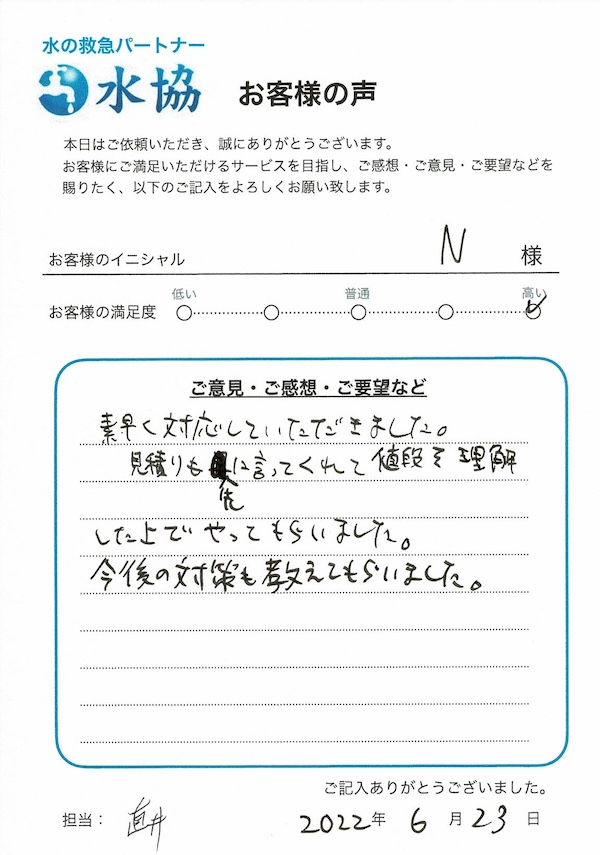 水の救急パートナー
水協 お客様の声
本日はご依頼いただき、誠にありがとうございます。
お客様にご満足いただけるサービスを目指し、ご感想・ご意見・ご要望などを
賜りたく、以下のご記入をよろしくお願い致します。
お客様のイニシャル N 様
低い 普通 高い
お客様の満足度
ご意見・ご感想・ご要望など
素早く対応していただきました。
見積りも先に言ってくれて値段を理解
した上でやってもらいました。
今後の対策も教えてもらいました。
ご記入ありがとうございました。
担当: 直井 2022年 6月 23日